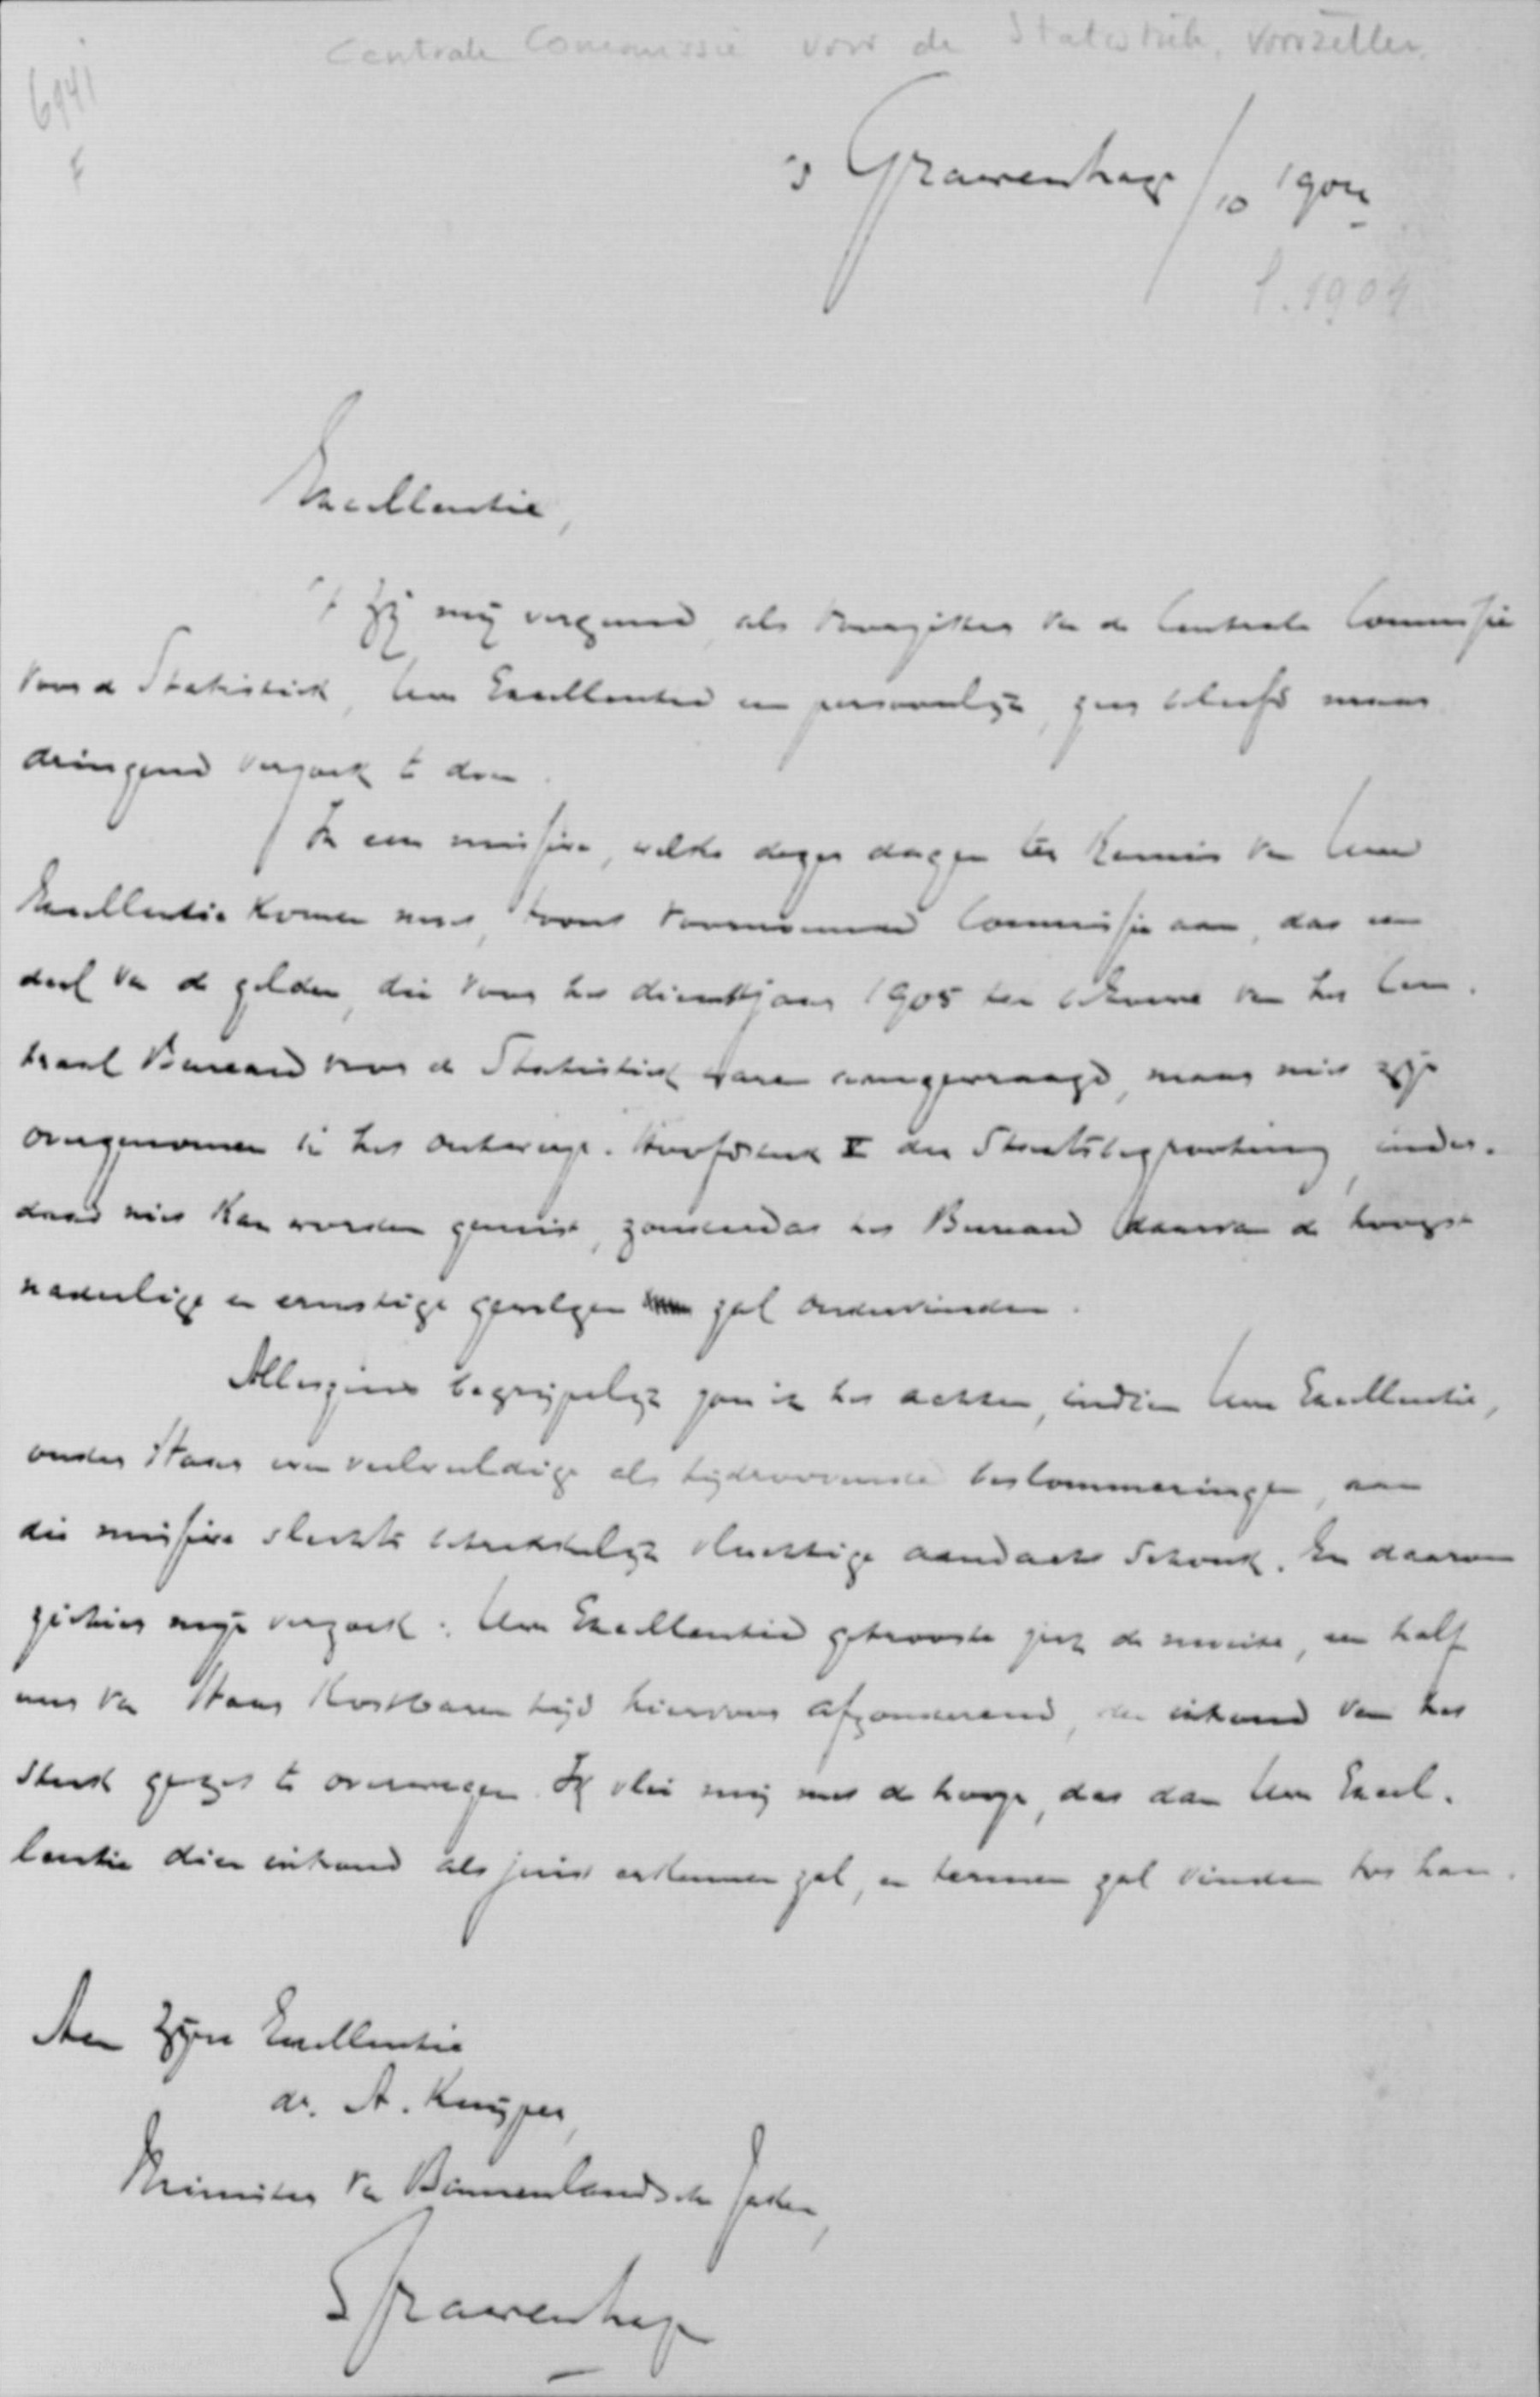 Centrale Commissie voor de Statistiek, Voorzitter.
6941
F
's Gravenhage /10 1904
1904
Excellentie,
't Zij mij vergund, als Voorzitter van de Centrale Commissie
voor de Statistiek, Uwe Excellentie een persoonlijk, zeer beleefd maar
dringend verzoek te doen.
In een missive, welke dezer dagen ter kennis van Uwe
Excellentie komen moet, toont voornoemde Commissie aan, dat een
deel van de gelden, die voor het dienstjaar 1905 ten behoeve van het Cen-
traal Bureau voor de Statistiek waren aangevraagd, maar niet zijn
overgenomen in het ontwerp-Hoofdstuk V der Staatsbegrooting, inder-
daad niet kan worden gemist, zonder dat het Bureau daarvan de hoogst
nadeelige en ernstige gevolgen zal ondervinden.
Alleszins begrijpelijk zou ik het achten, indien Uwe Excellentie,
onder Haar even veelvuldige als tijdroovende beslommeringen, aan
die missive slechts betrekkelijk vluchtige aandacht schonk. En daarom
zie hier mijn verzoek: Uwe Excellentie getrooste zich de moeite, een half
uur van Haar kostbaren tijd hiervoor afzonderend, den inhoud van het
stuk gezet te overwegen. Ik vlei mij met de hoop, dat dan Uwe Excel-
lentie dien inhoud als juist erkennen zal, en termen zal vinden tot han-
Aan Zijne Excellentie
dr. A. Kuijper,
Minister van Binnenlandsche Zaken,
's Gravenhage